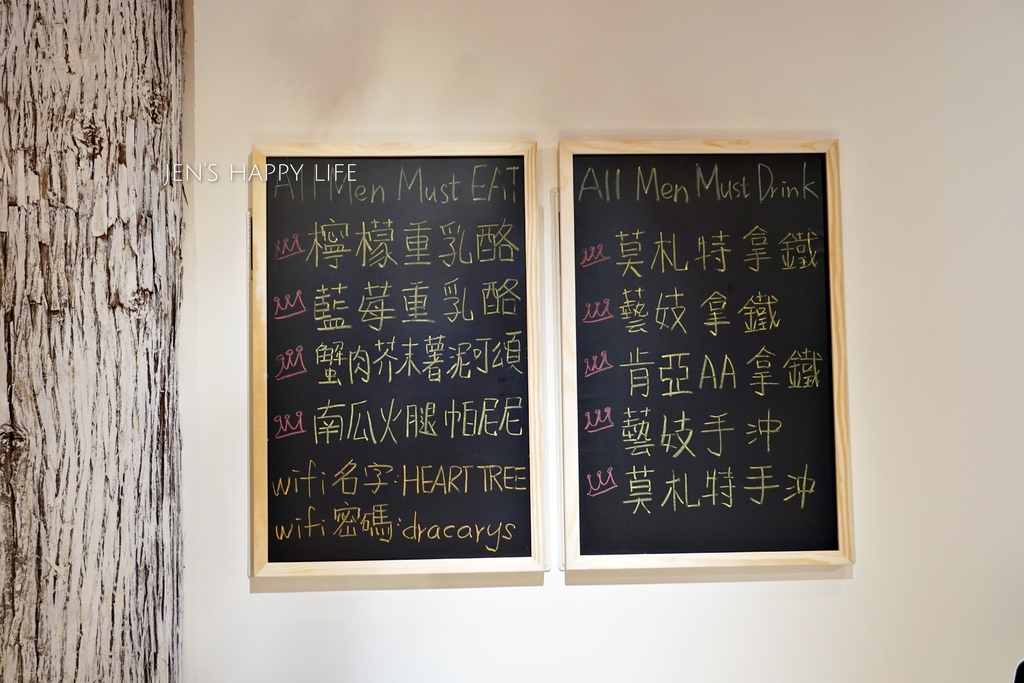 JEN'S HAPPY LIFE
All Men Must EAT
檸檬重乳酪
藍莓重乳酪
蟹肉芥末薯泥可頌
南瓜火腿帕尼尼
wifi名字:HEART TREE
wifi密碼:dracarys
All Men Must Drink
莫札特拿鐵
藝妓拿鐵
肯亞AA拿鐵
藝妓手沖
莫札特手沖